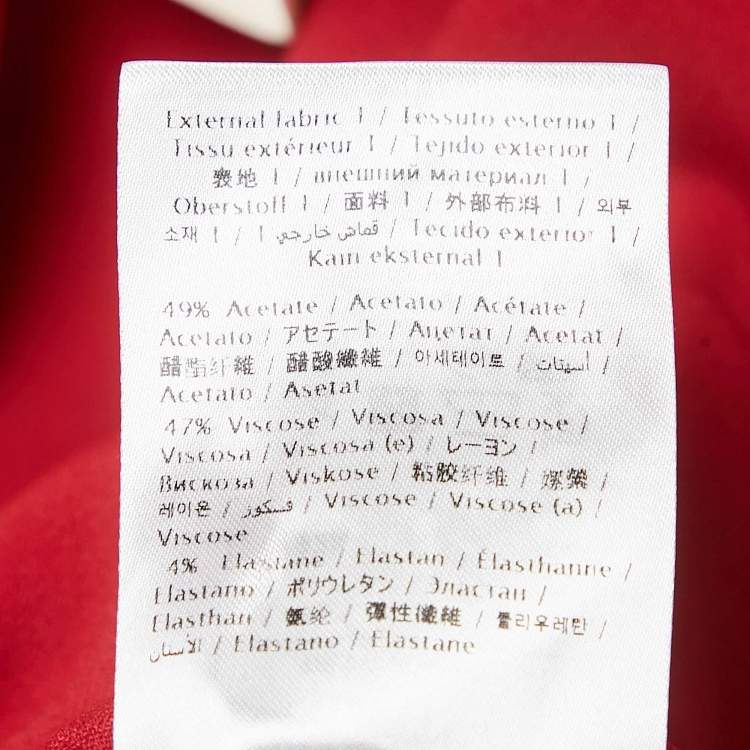 External fabric 1 / Tessuto esterno 1 /
Tissu extérieur 1 / Tejido exterior 1 /
表地 1 / внешний материал 1 /
Oberstoff 1 / 面料 1 / 外部布料 1 / 외부
소재 1 / 1 قماش خارجي / Tecido exterior 1 /
Kain eksternal 1
49% Acetate / Acetato / Acétate /
Acetato / アセテート / Ацетат / Acetat /
醋酯纤维 / 醋酸纖維 / 아세테이트 / أسيتات /
Acetato / Asetat
47% Viscose / Viscosa / Viscose /
Viscosa / Viscosa (e) / レーヨン /
Вискоза / Viskose / 粘胶纤维 / 嫘縈 /
레이온 / فسكوز / Viscose / Viscose (a) /
Viscose
4% Elastane / Elastan / Élasthanne /
Elastano / ポリウレタン / Эластан /
Elasthan / 氨纶 / 彈性纖維 / 폴리우레탄 /
الأستان / Elastano / Elastane